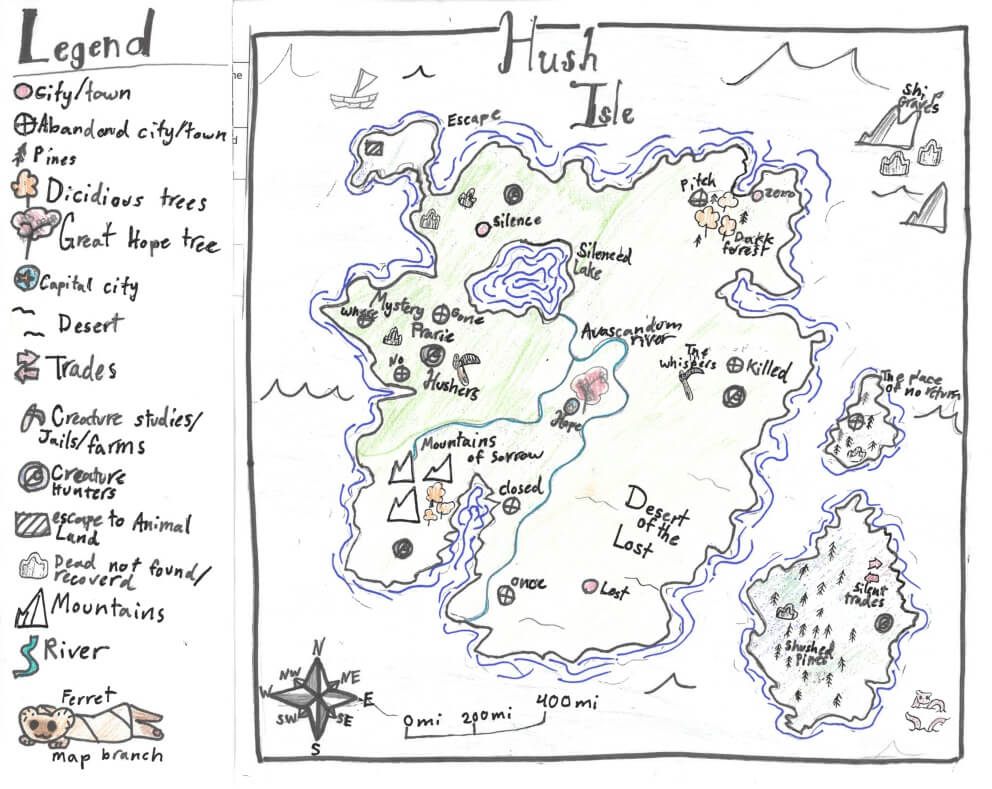 Legend
City/town
Abandond city/town
Pines
Dicidious trees
Great Hope tree
Capital city
Desert
Trades
Creature studies/
Jails/farms
Creature
Hunters
escape to Animal
Land
Dead not found/
recoverd
Mountains
River
Ferret
map branch
ne
d
Hush
Isle
Escape
Shi
Graves
Silence
Pitch
zero
Dark
forest
Silenced
Lake
Mystery
Prarie
Gone
No
Hushers
Avascandum
river
The
whispers
Killed
Hope
The place
of no return
Mountains
of Sorrow
closed
Desert
of the
Lost
once
Lost
Silent
trades
Shushed
Pines
N
NW
NE
W
E
SW
SE
S
0mi
200mi
400mi